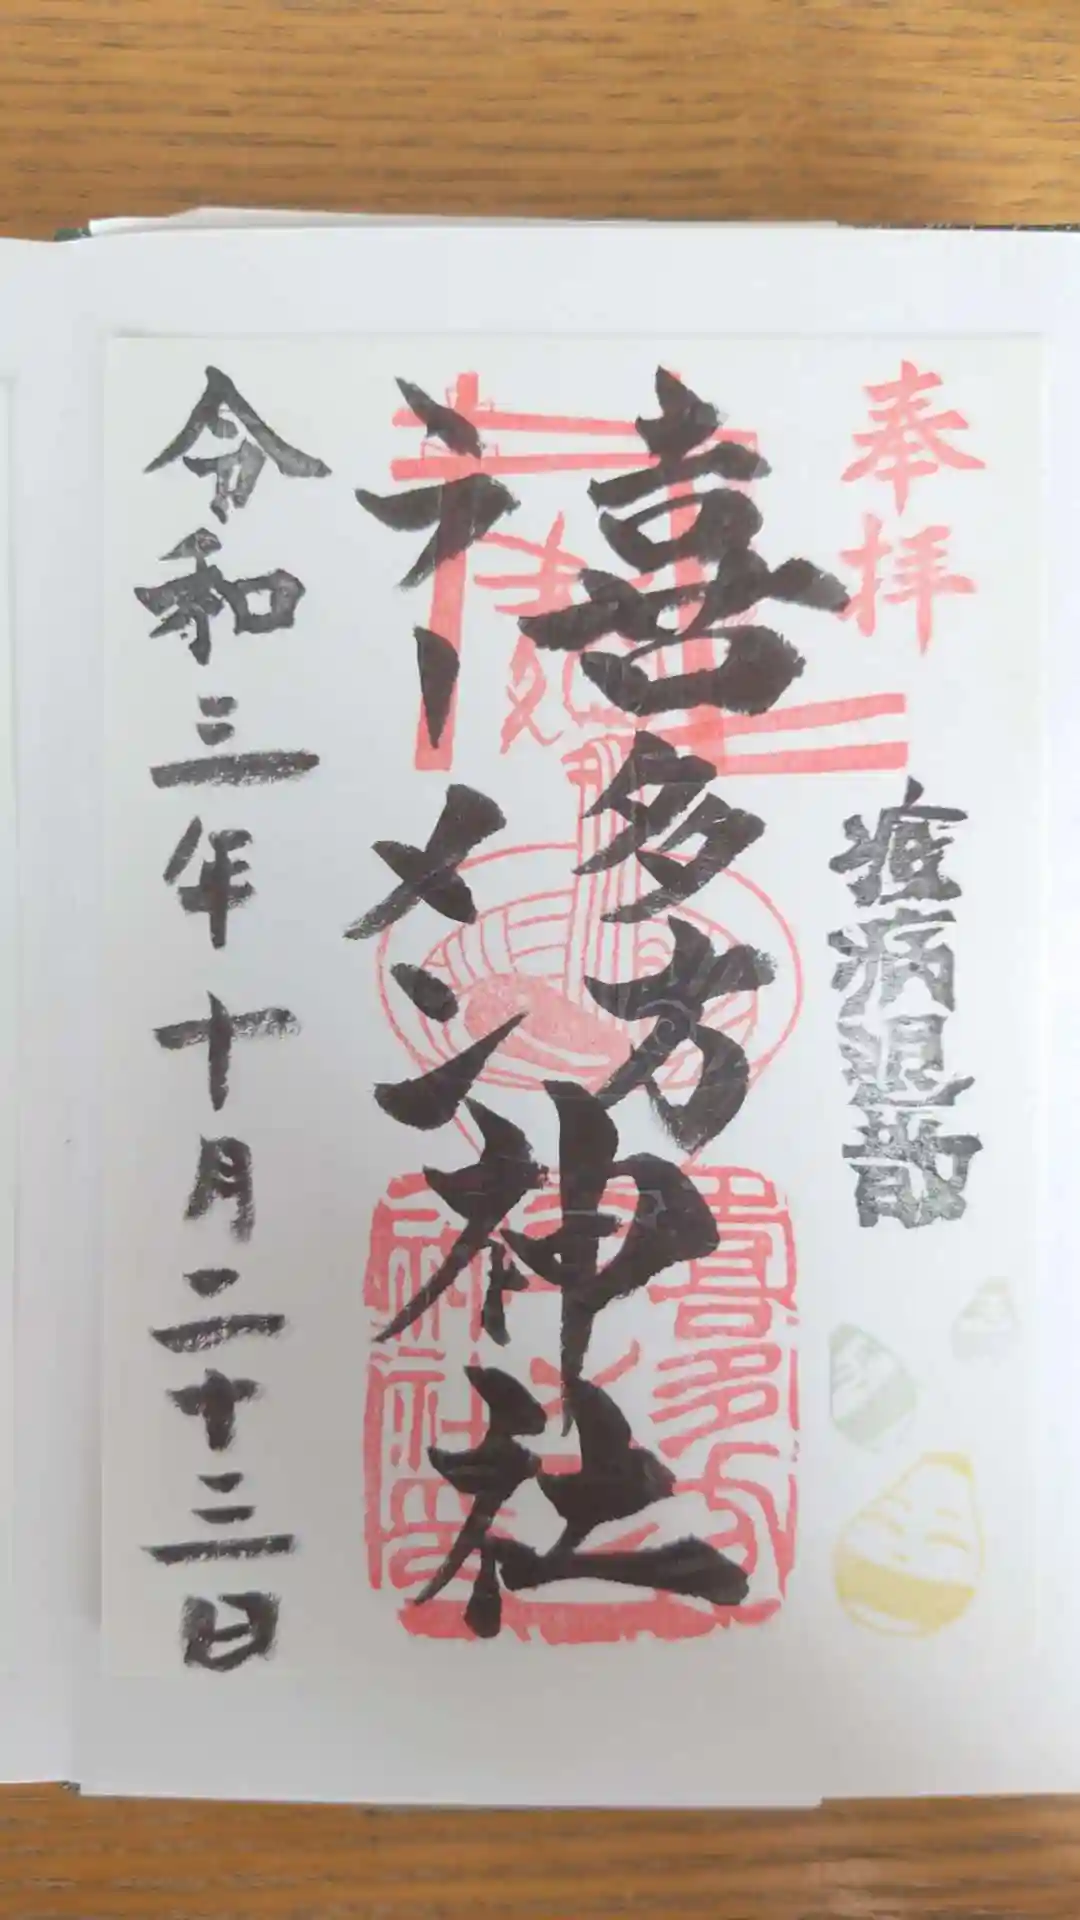 奉拝
疫病退散
喜多方
ラーメン神社
令和三年十月二十三日
喜多方
神社